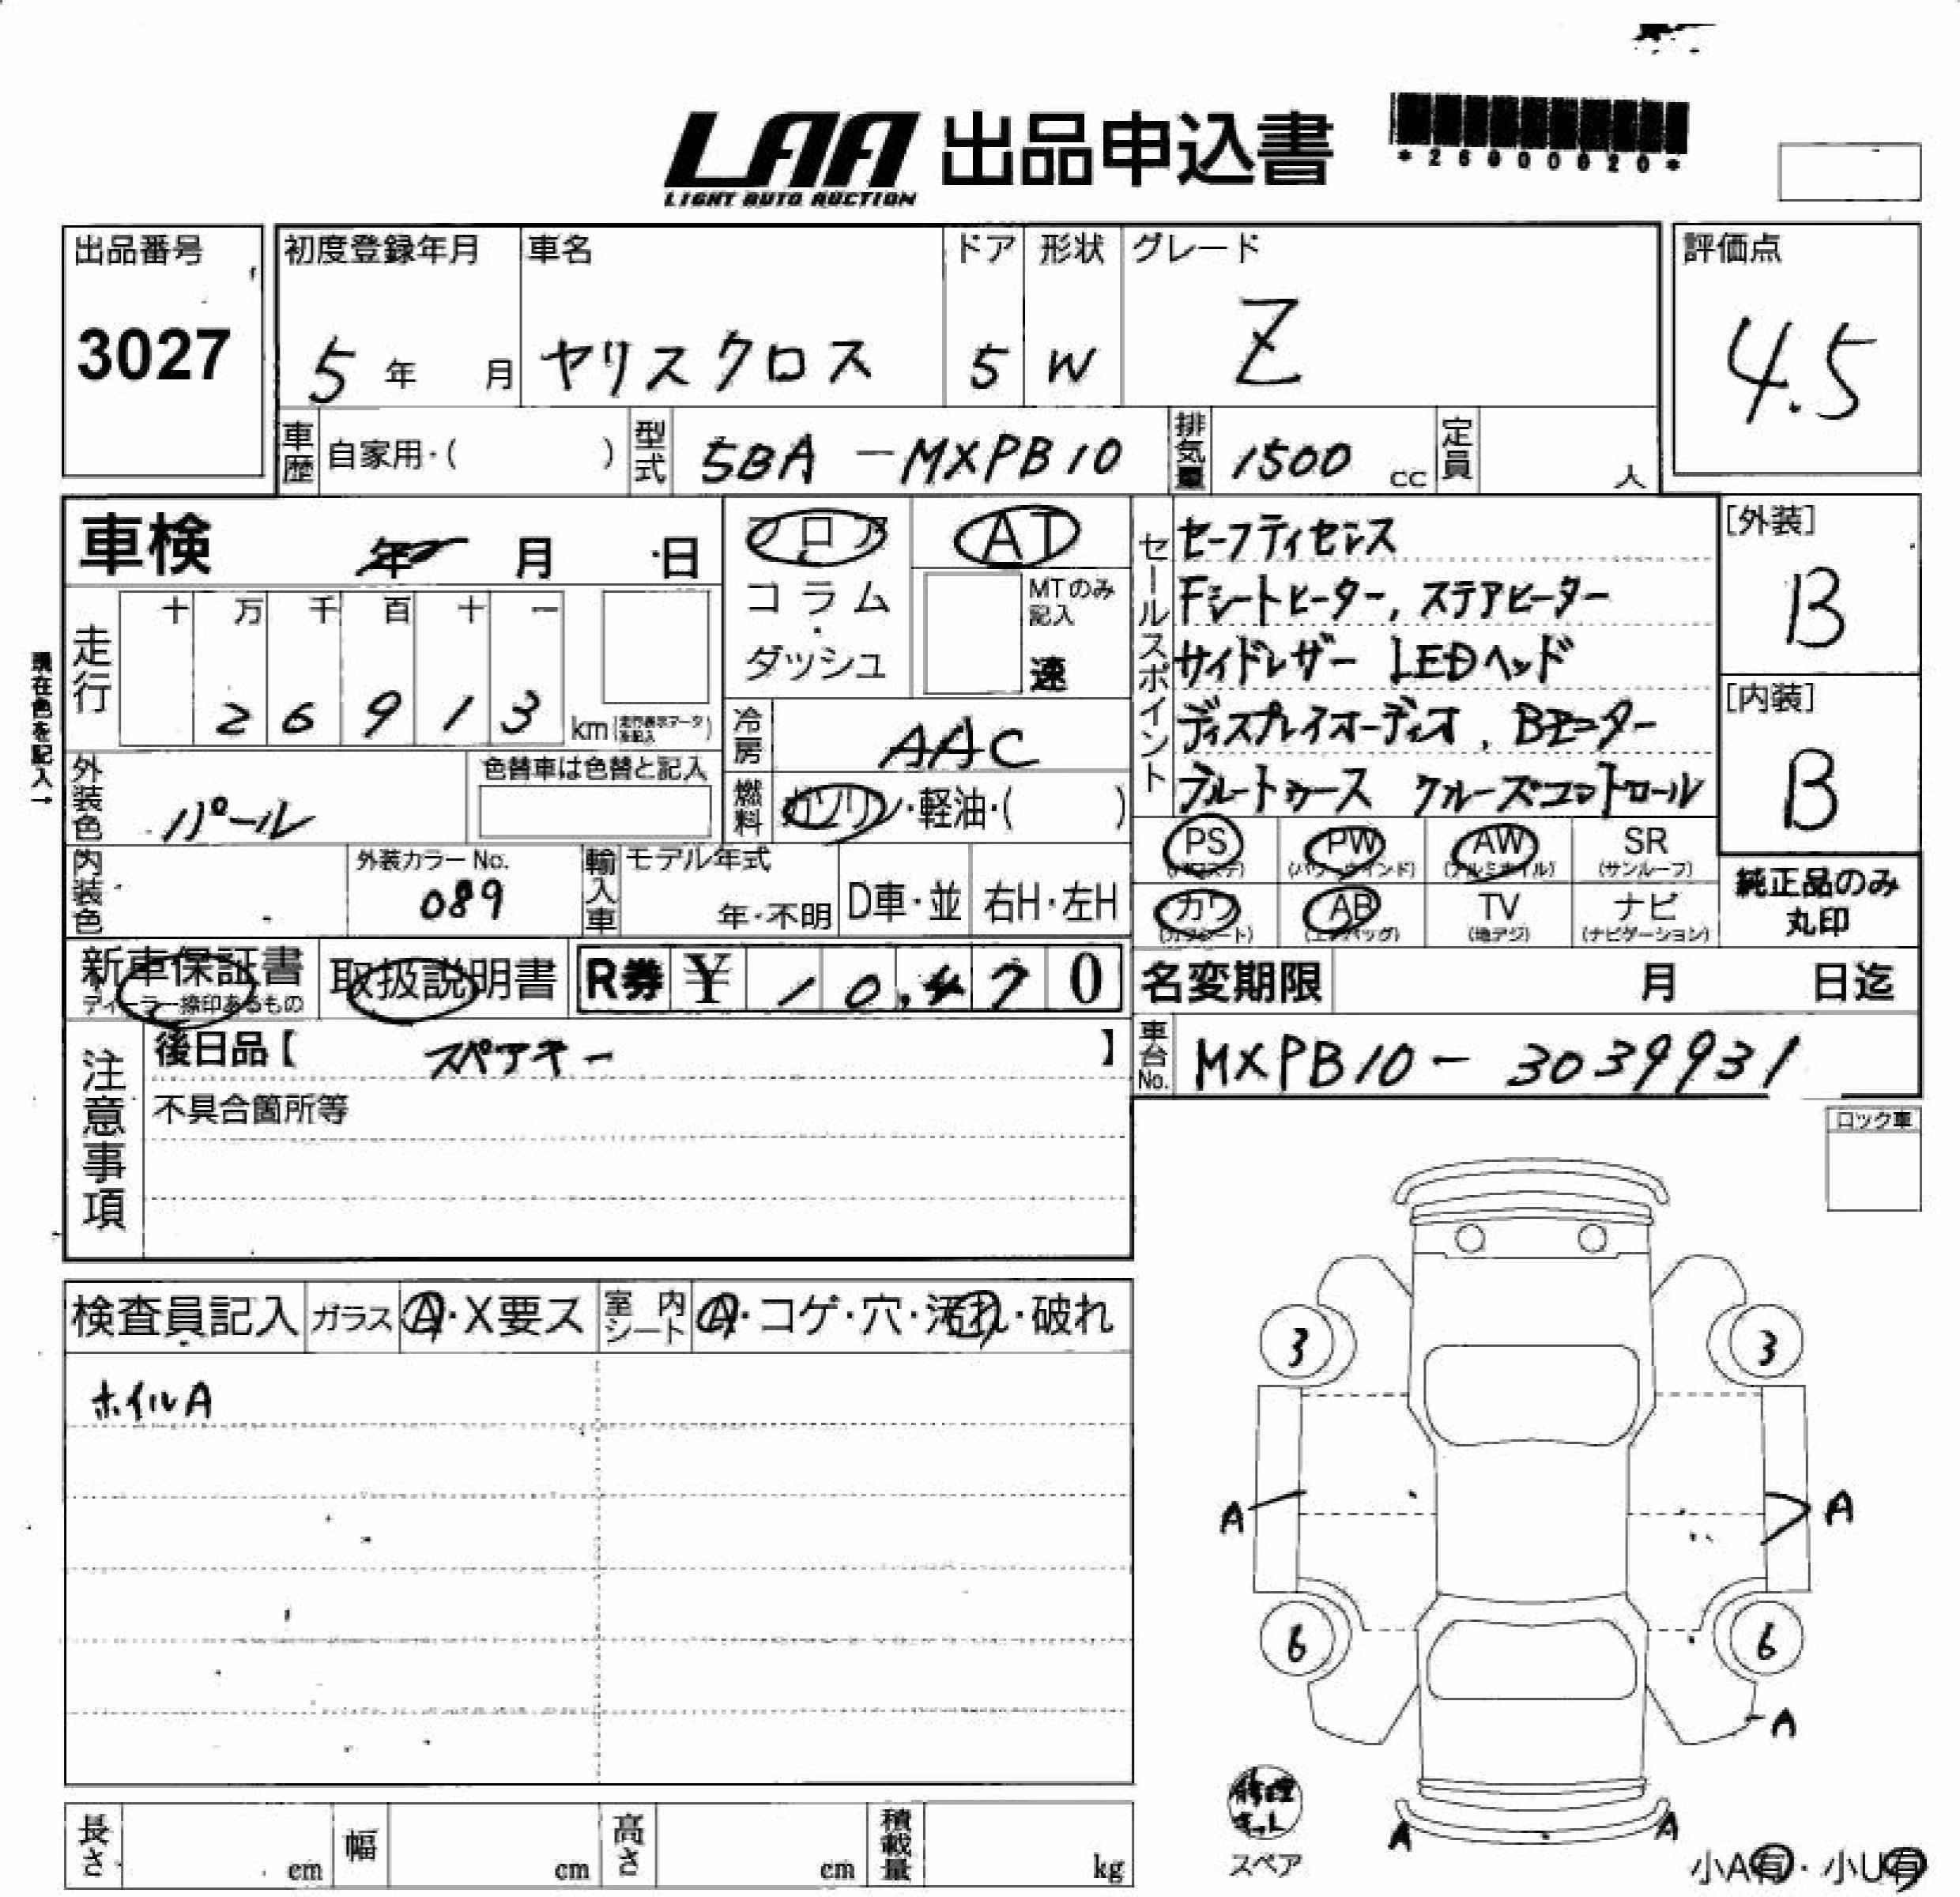 LAA 出品申込書
LIGHT AUTO AUCTION
*26000020*
出品番号
3027
初度登録年月
5年 月
車名
ヤリスクロス
ドア
5
形状
W
グレード
Z
評価点
4.5
車歴 自家用・( )
型式 5BA-MXPB10
排気量 1500 cc
定員 人
車検 年 月 日
フロア
コラム
・
ダッシュ
AT
MTのみ
記入
速
セールスポイント
セーフティセンス
Fシートヒーター, ステアヒーター
サイドレザー LEDヘッド
ディスプレイオーディオ, Bモニター
ブルートゥース クルーズコントロール
[外装]
B
[内装]
B
現在色を記入→
走行
十 万 千 百 十 一
2 6 9 1 3 km
冷房 AAC
燃料 ガソリン・軽油・( )
外装色 パール
色替車は色替と記入
内装色
外装カラーNo.
089
輸入車
モデル年式
年・不明
D車・並
右H・左H
PS
(パワステ)
PW
(パワーウインド)
AW
(アルミホイル)
SR
(サンルーフ)
カワ
(カワシート)
AB
(エアバッグ)
TV
(地デジ)
ナビ
(ナビゲーション)
純正品のみ
丸印
新車保証書
ディーラー捺印あるもの
取扱説明書
R券 ¥ 10,470
名変期限 月 日迄
車台No. MXPB10-3039931
注意事項
後日品【 スペアキー 】
不具合箇所等
ロック車
検査員記入
ガラス A・X要ス
室内シート A・コゲ・穴・汚れ・破れ
ホイルA
3
3
A
A
6
6
A
A
A
修理
キット
スペア
小A有・小U有
長さ cm
幅 cm
高さ cm
積載量 kg